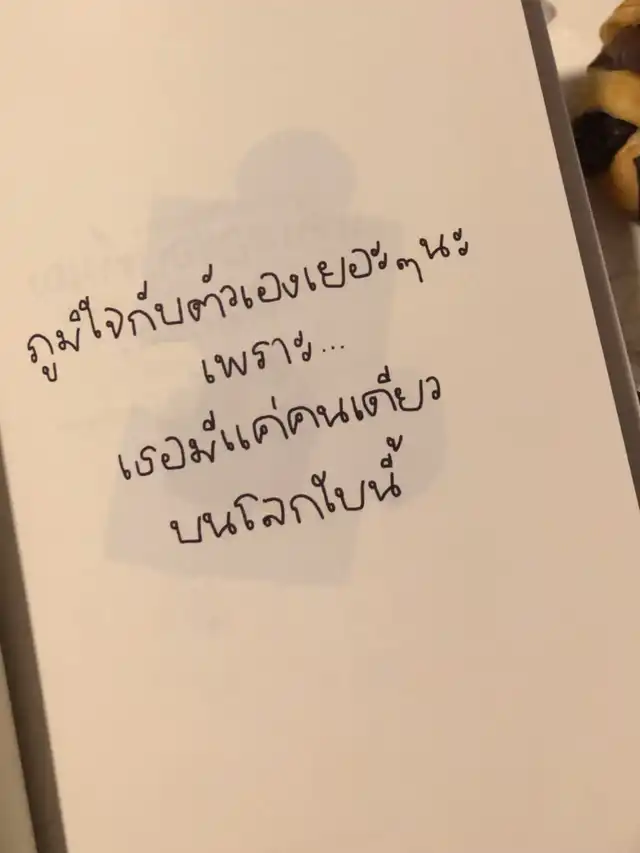 ภูมิใจกับตัวเองเยอะๆนะ
เพราะ...
เธอมีแค่คนเดียว
บนโลกใบนี้